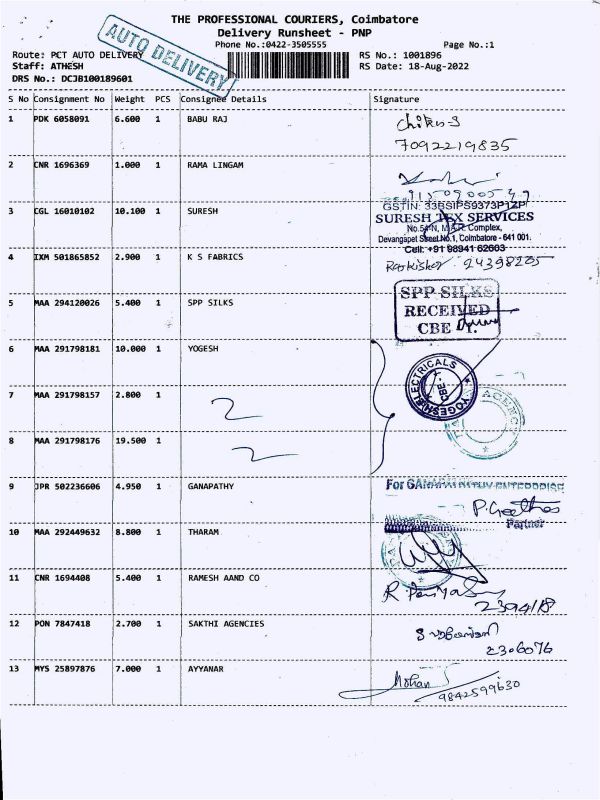 THE PROFESSIONAL COURIERS, Coimbatore
Delivery Runsheet - PNP
Phone No.:0422-3505555 Page No.:1
AUTO DELIVERY
Route: PCT AUTO DELIVERY RS No.: 1001896
Staff: ATHESH RS Date: 18-Aug-2022
DRS No.: DCJB100189601
S No Consignment No Weight PCS Consignee Details Signature
1 PDK 6058091 6.600 1 BABU RAJ
7092219835
2 CNR 1696369 1.000 1 RAMA LINGAM
GSTIN: 33BSIPS9373P1ZP
3 CGL 16010102 10.100 1 SURESH SURESH TEX SERVICES
Complex,
Devangapet Street No.1, Coimbatore - 641 001.
Cell: +91 98941 62603
4 IXM 501865852 2.900 1 K S FABRICS
5 MAA 294120026 5.400 1 SPP SILKS
SPP SILKS
RECEIVED
CBE
6 MAA 291798181 10.000 1 YOGESH
YOGESH ELECTRICALS
CBE
7 MAA 291798157 2.800 1
AGENCY
8 MAA 291798176 19.500 1
9 JPR 502236606 4.950 1 GANAPATHY
For
P. Geetha
Partner
10 MAA 292449632 8.800 1 THARAM
11 CNR 1694408 5.400 1 RAMESH AAND CO
12 PON 7847418 2.700 1 SAKTHI AGENCIES
2306076
13 MYS 25897876 7.000 1 AYYANAR
Mohan
9842599630